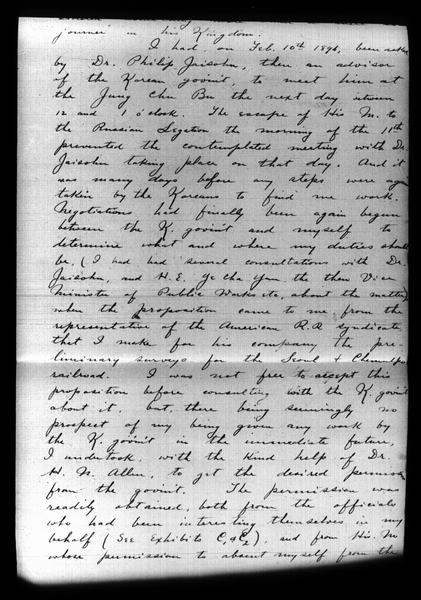 journee in his Kingdom.
I had, on Feb. 10th 1896, been asked
by Dr. Philip Jaisohn, then an advisor
of the Korean govm't, to meet him at
the Jung Chu Bu the next day between
12 and 1 o'clock. The escape of His M. to
the Russian Legation the morning of the 11th
prevented the contemplated meeting with Dr.
Jaisohn taking place on that day. And it
was many days before any steps were again
taken by the Koreans to find me work.
Negotiations had finally been again begun
between the K. govm't and myself to
determine what and where my duties should
be, (I had had several consultations with Dr.
Jaisohn, and H. E. Ye Cha Yun, the then Vice
Minister of Public Works etc, about the matter)
when the proposition came to me from the
representative of the American R.R. Syndicate
that I make for his company the pre-
liminary surveys for the Seoul & Chemulpo
railroad. I was not free to accept this
proposition before consulting with the K. govm't
about it, but, there being seemingly no
prospect of my being given any work by
the K. govm't in the immediate future,
I undertook, with the kind help of Dr.
H. N. Allen, to get the desired permission
from the govm't. The permission was
readily obtained, both from the officials
who had been interesting themselves in my
behalf (See Exhibits C₁ & C₂), and from His M.
whose permission to absent myself from the